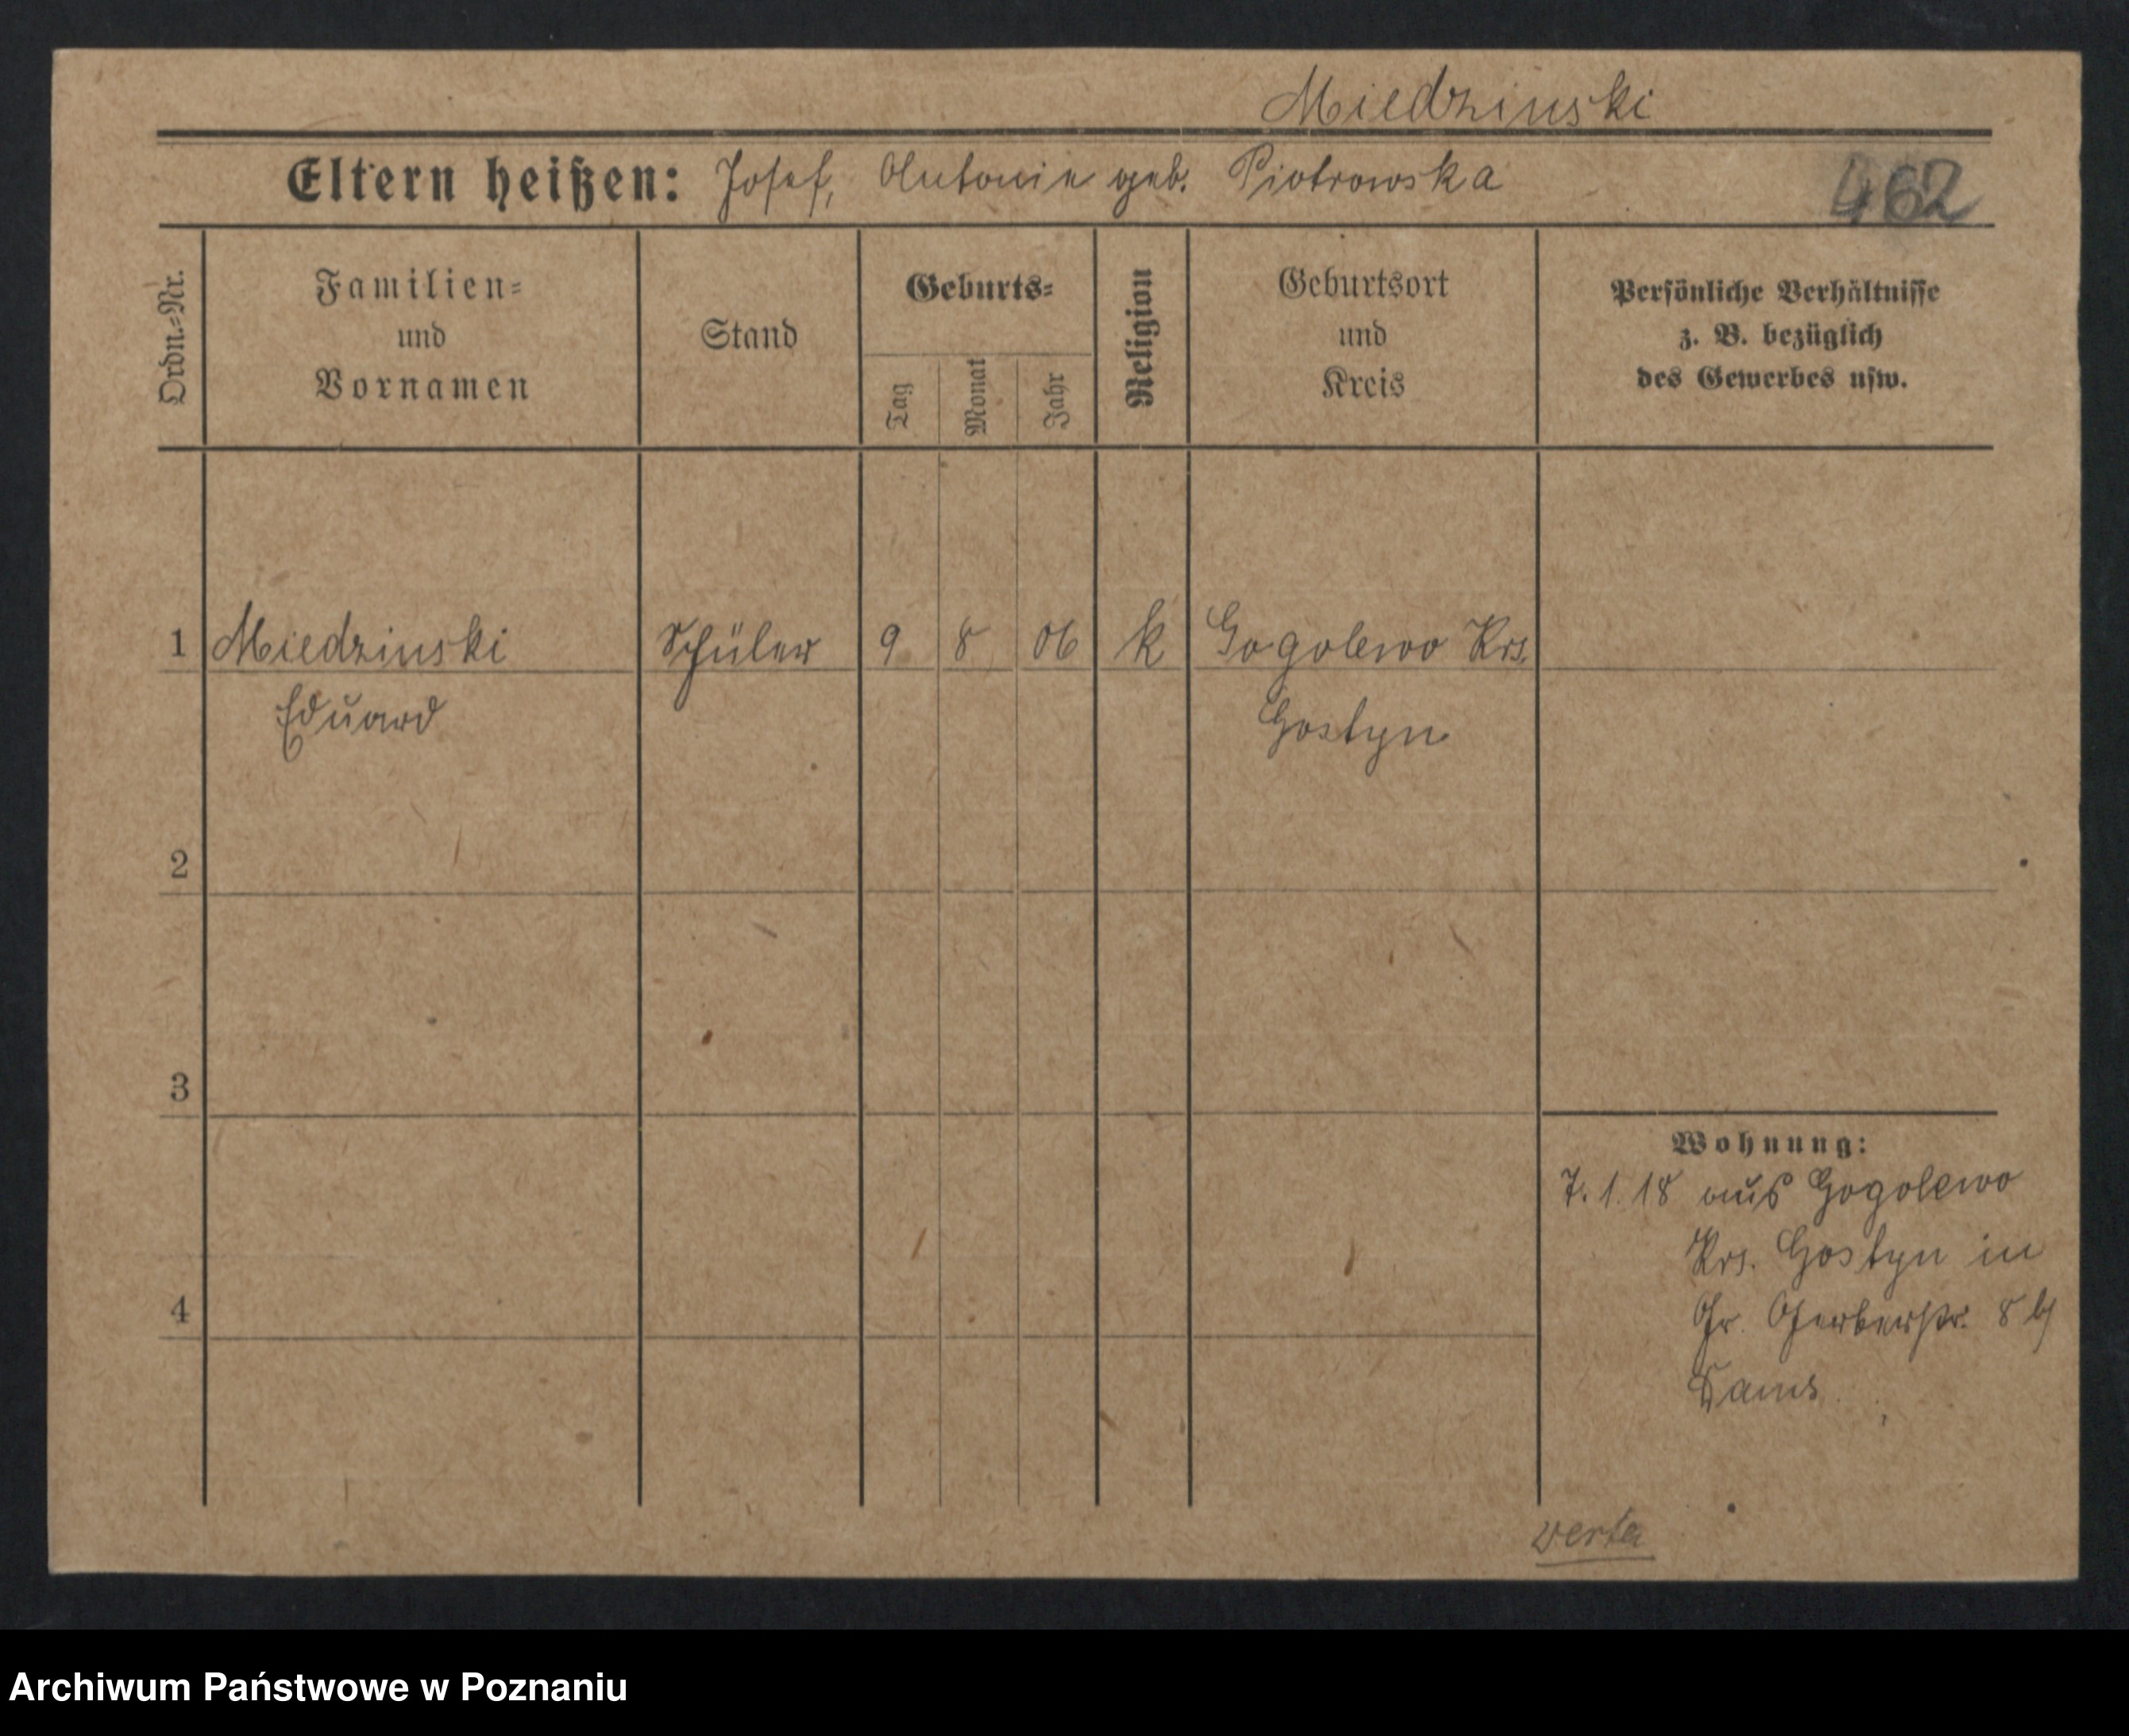 Miedzinski
Eltern heißen: Josef, Antonie geb. Piotrowska
462
Ordn.=Nr.
Familien=
und
Vornamen
Stand
Geburts=
Tag
Monat
Jahr
Religion
Geburtsort
und
Kreis
Persönliche Verhältnisse
z. B. bezüglich
des Gewerbes usw.
1 Miedzinski Schüler 9 8 06 k Gogolewo Krs.
Eduard Gostyn
2
3
4
Wohnung:
7. 1. 18 aus Gogolewo
Krs. Gostyn in
Gr. Gerberstr. 8 b/
verte
Archiwum Państwowe w Poznaniu